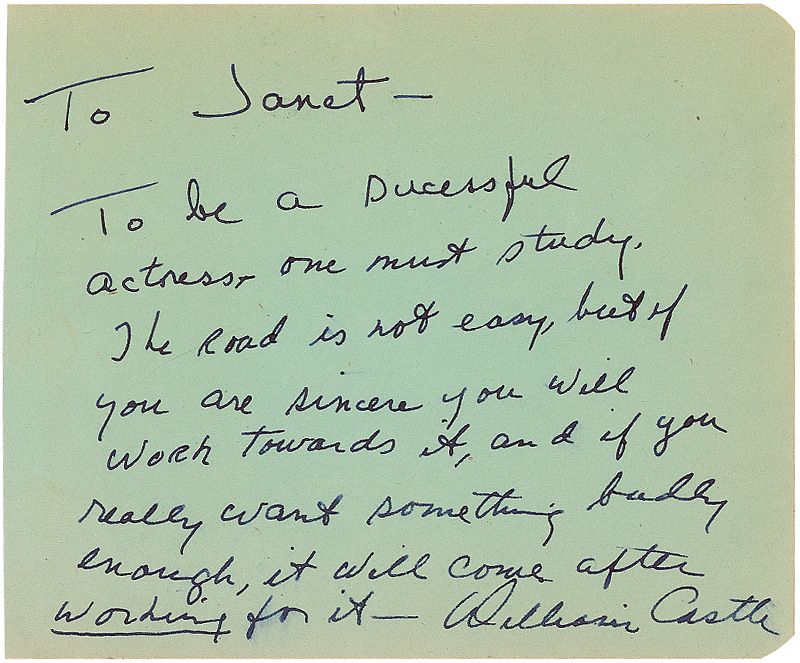 To Janet —
To be a sucessful
actress - one must study.
The road is not easy, but if
you are sincere you will
work towards it, and if you
really want something badly
enough, it will come after
working for it — William Castle